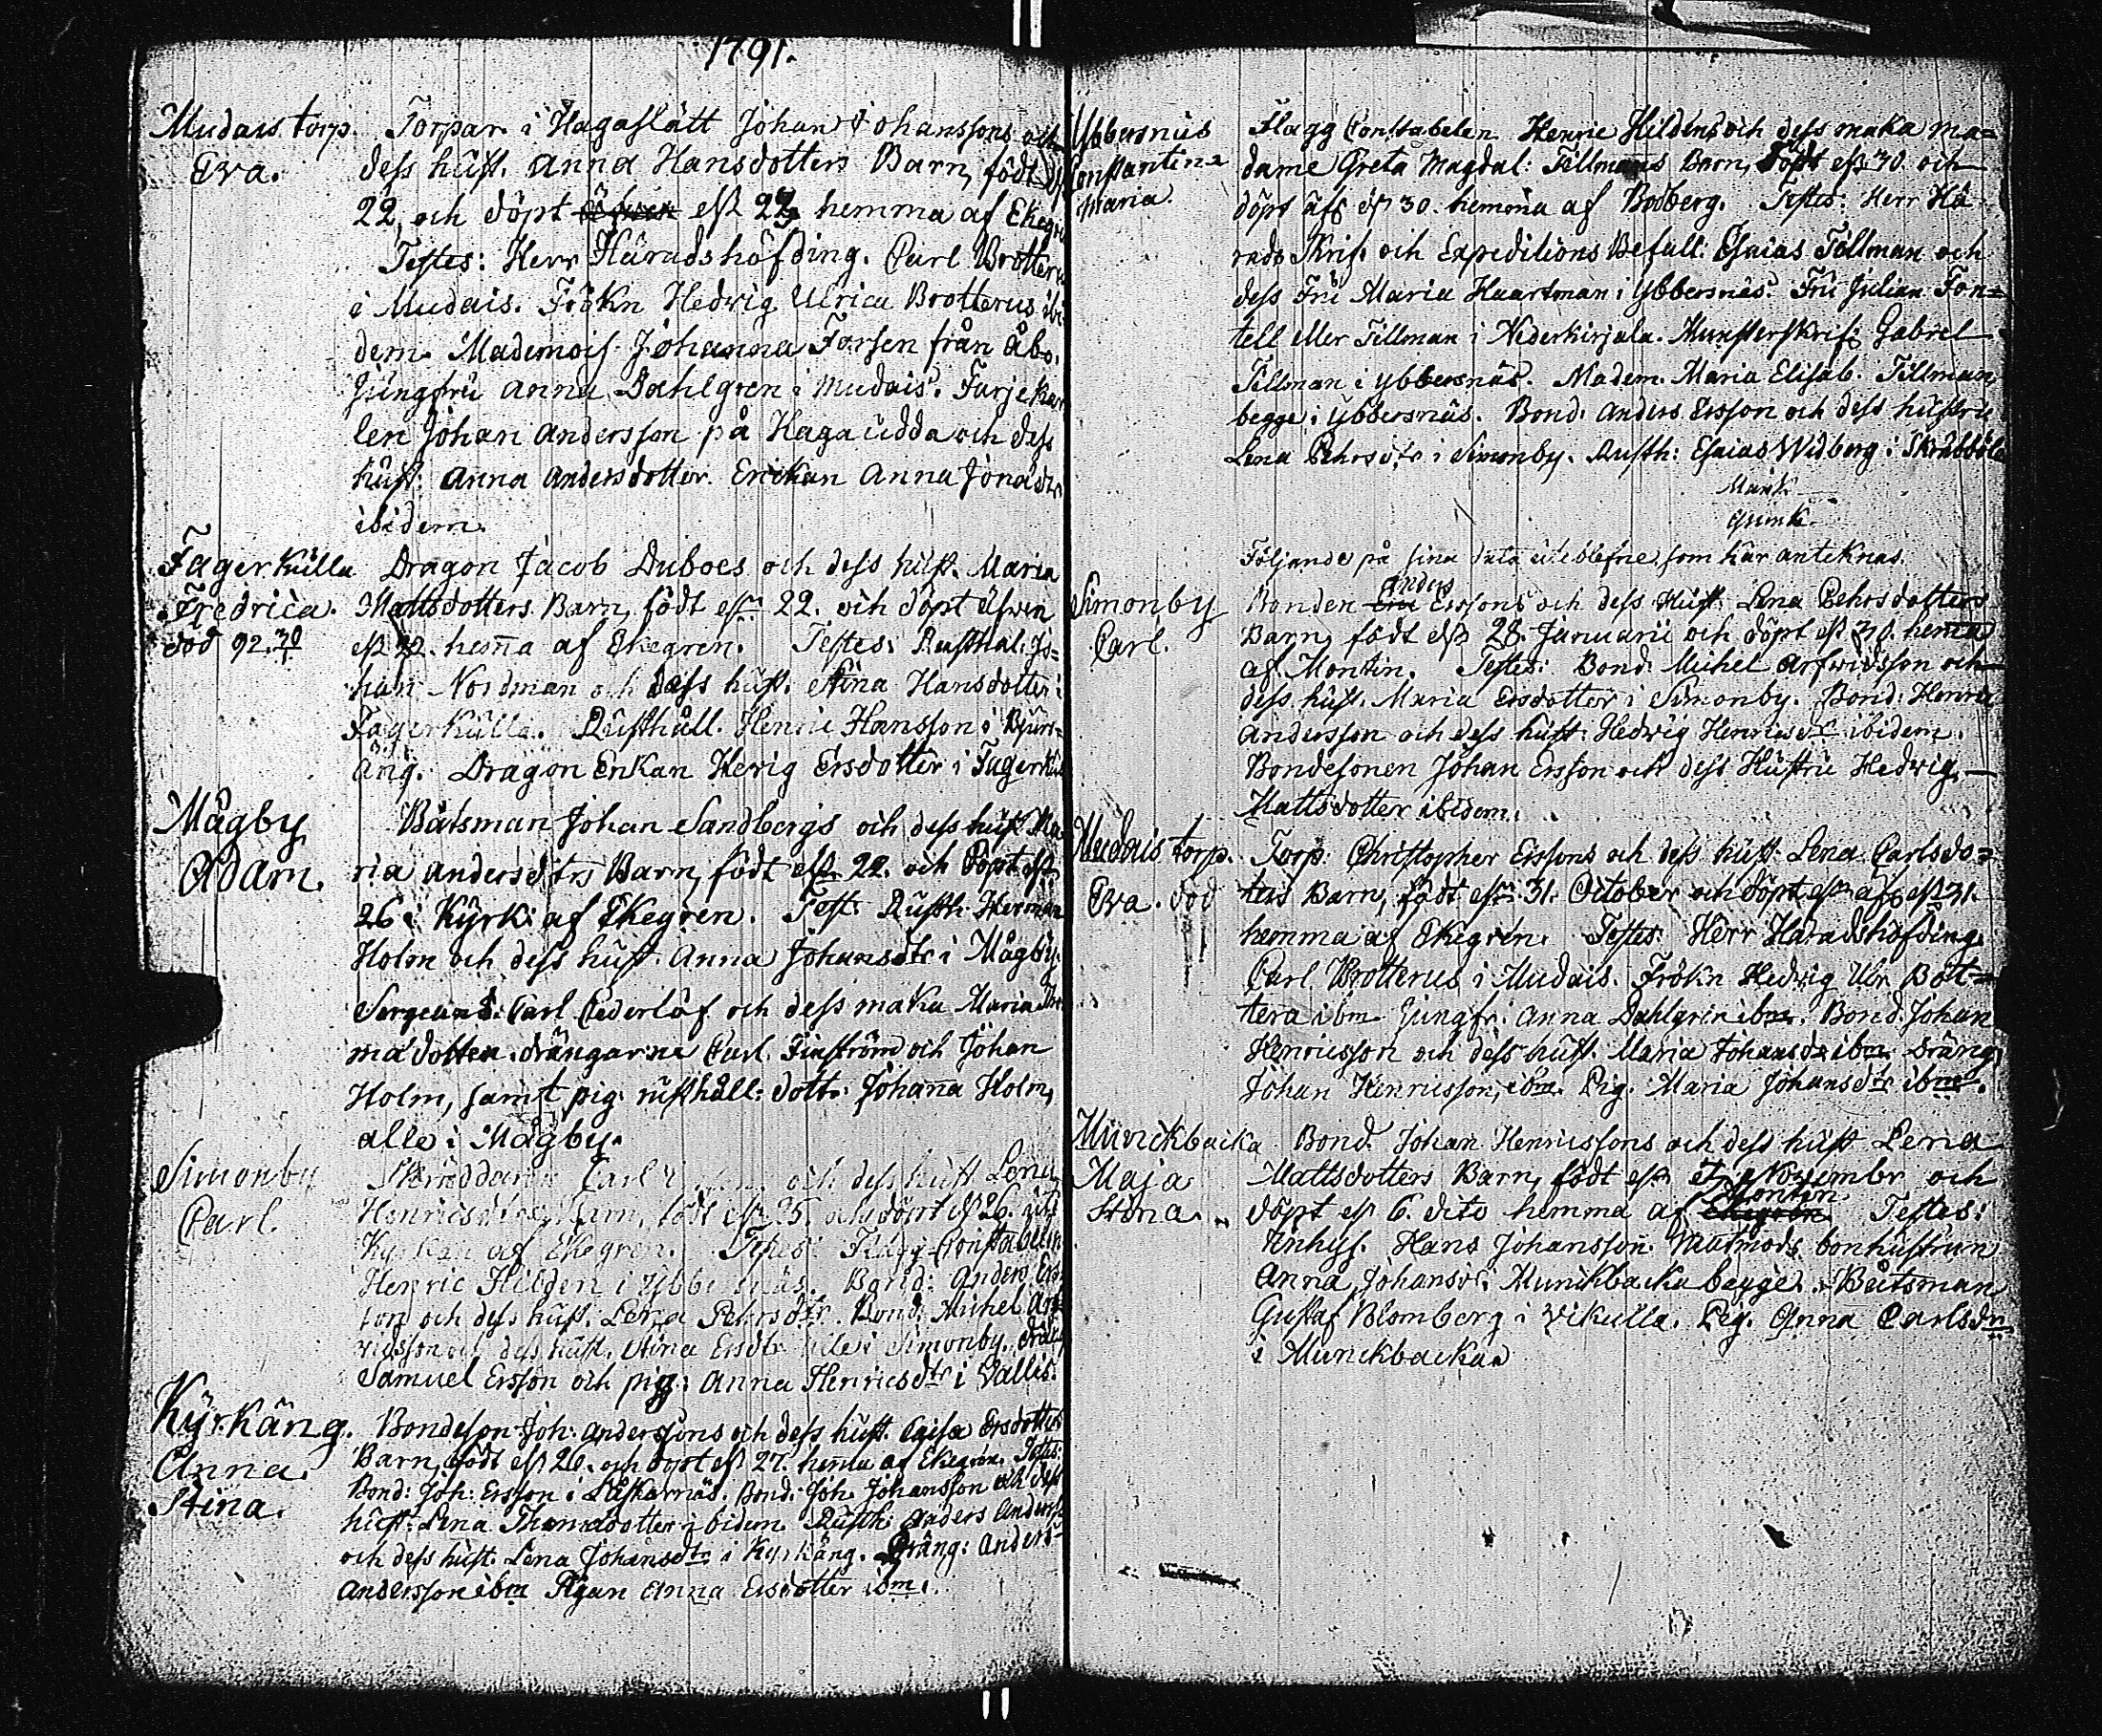 1791.
Mudais torp. Torpar. i Hagaslätt Johan Johanssons och
Eva. dess hust. Anna Hansdotters Barn, född
22, och döpt eft 22 hemma af Ekegren
Testes: Herr Häradshöfding. Carl Brotterus
i Mudais. Frökn Hedvig Ulrica Brotterus ibi-
dem. Mademois. Johanna Forsen från Åbo.
Jungfru Anna Dahlgren i Mudais. Farjekar
len Johan Andersson på Haga udda och dess
hust: Anna Andersdotter. Enckan Anna Jonasdr
ibidem.
Fagerkulla Dragon Jacob Duboes och dess hust. Maria
Fredrica. Mattsdotters Barn, födt 22. och döpt
död 92. 22. hemna af Ekegren. Testes: Rusthal. Jo=
han Nordman och dess hust. Stina Hansdotter i
Fagerkulla. Rusthåll. Henric Hansson i Bjurs=
äng. Dragon Enkan Herig Ersdotter i Fagerkul
Mågby Båtsman Johan Sandbergs och dess hust Ma
Adam. ria Andersdtrs Barn, födt 22. och Döpt
26 i Kyrk: af Ekegren. Test: Rusth. Herman
Holm och dess hust. Anna Johansdtr i Mågby.
Sergeant. Carl Cederlöf och dess maka Maria Tho
ma dotter. drängarne Carl Finström och Johan
Holm, samt pig: rusthåll. dottr: Johanna Holm,
alle i Mågby.
Simonby Skräddaren Carl och dess hust Lena
Carl. Henricsdtrs Barn, födt 25. och döpt 26. uti
Kyrkan af Ekegren. Testes: Flagg Constabeln
Henric Hilden i Ybbersnäs. Bond: Anders Ers
son och dess hust. Lena Pehrsdtr. Bond. Michel Arf
vidsson och dess hust. Stina Ersdtr alle i Simonby. dräng
Samuel Ersson och pig: Anna Henricsdtr i Vallis.
Kyrkäng. Bondeson Joh: Anderssons och dess hust. Caisa Ersdotters
Anna Barn, födt 26. och döpt 27. hemma af Ekegren. Testes:
Stina. Bond: Joh: Ersson i Låskarnäs. Bond. Joh. Johansson och dess
hust: Lena Thomædotter ibidem. Rusth: Anders Anderss
och dess hust. Lena Johansdtr i Kyrkäng. Dräng: Anders
Andersson ibm Pigan Anna Ersdotter ibm.
Ybbersnäs Flagg Constabelen Henric Hildens och dess maka ma=
Constantina dame Greta Magdal: Tillmans Barn, 30. och
Maria. döpt 30. hemma af Bodberg. Testes: Herr Hä
rads Skrif. och Expeditions Befalt. Esaias Tillman och
dess Fru Maria Haartman i Ybbersnäs. Fru Julian Fon=
tell eller Tillman i Nederkirjala. Munsterskrif: Gabriel
Tillman i Ybbersnäs. Madem. Maria Elisab. Tillman,
begge i Ybbersnäs. Bond. Anders Ersson och dess hustru
Lena Pehrsdtr i Simonby. Rusth: Esaias Widberg i Skräbböle
Följande på sina data uteblefne som här anteknas.
Simonby Bonden Anders Erssons och dess Hust. Lena Pehrsdotters
Carl. Barn, födt 28. Januarii och döpt 30. hemma
af Montin. Testes: Bond. Michel Arfwidsson och
dess hust. Maria Ersdotter i Simonby. Bond. Henric
Andersson och dess hust. Hedwig Henricsdr ibidem.
Bondesonen Johan Ersson och dess Hustru Hedwig
Mattsdotter ibidem.
Mudais torp. Torp: Christopher Erssons och dess hust. Lena Carlsdo=
Eva. död ters Barn, födt 31. October och döpt 31.
hemma af Ekegren. Testes: Herr Häradshöfding
Carl Brotterus i Mudais. Frökn Hedvig Ulr Bott=
tera ibm. Jungfr: Anna Dahlgrin ibm. Bond. Johan
Henricsson och dess hust. Maria Johansdr ibm. Dräng
Johan Henricsson, ibm. Pig. Maria Johansdtr ibm.
Munckbacka Bond. Johan Henricssons och dess hust Lena
Maja Mattsdotters Barn, födt Novembr och
Stina. döpt 6. dito hemma af Ekegren Montin. Testes:
Inhys. Hans Johansson. bonhustrun
Anna Johansdr. Munckbacka begge. Båtsman
Gustaf Blomberg i Vikulla. Pig. Anna Carlsdr
i Munckbacka